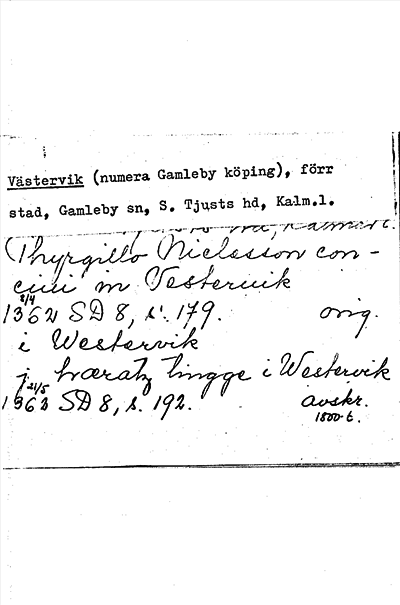 Västervik (numera Gamleby köping), förr
stad, Gamleby sn, S. Tjusts hd, Kalm.l.
Thyrgillo Niclisson con-
ciui in Vesteruik
1362 8/4 SD 8, s. 179. orig.
i Westervik
j hwæratz tingge i Westervik
1363 21/5 SD 8, s. 192. avskr.
1500-t.